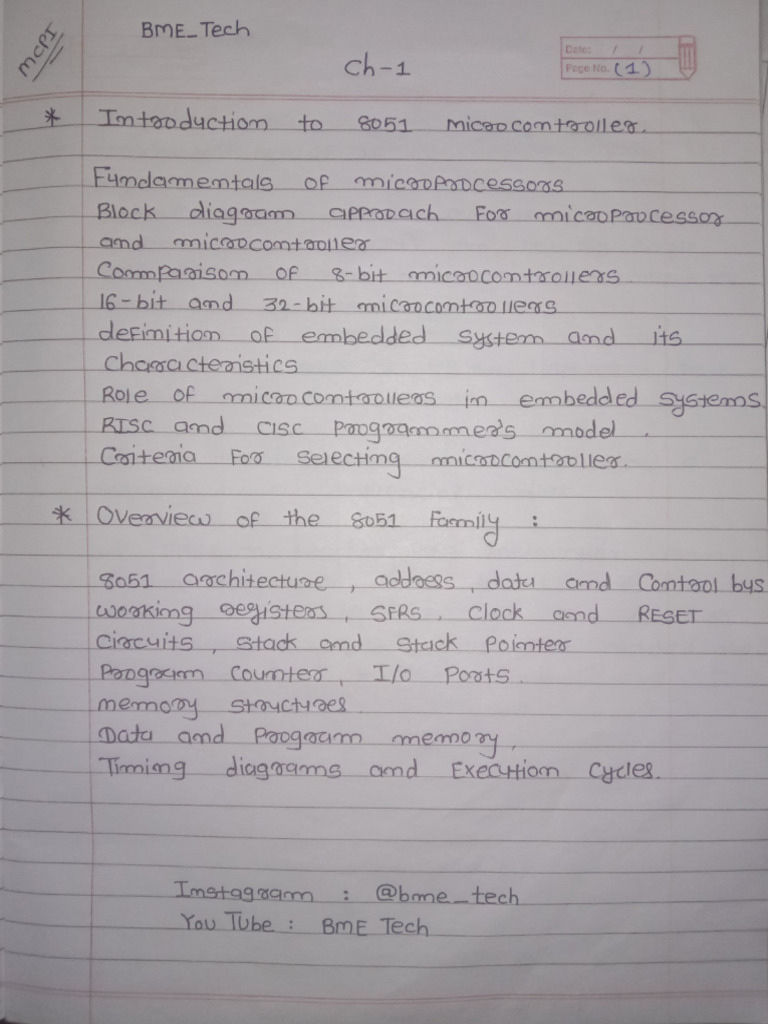 MCPI
BME_Tech
Ch-1
Date: / /
Page No. (1)
* Introduction to 8051 microcontroller.
Fundamentals of microprocessors
Block diagram approach for microprocessor
and microcontroller
Comparison of 8-bit microcontrollers
16-bit and 32-bit microcontrollers
definition of embedded system and its
Characteristics
Role of microcontrollers in embedded systems
RISC and CISC Programmer's model.
Criteria for selecting microcontroller.
* Overview of the 8051 Family :
8051 architecture, address, data and Control bus
working registers, SFRS, Clock and RESET
Circuits, stack and stack pointer
Program counter, I/O Ports.
memory structures.
Data and Program memory,
Timing diagrams and Execution Cycles.
Instagram : @bme_tech
YouTube : BME Tech